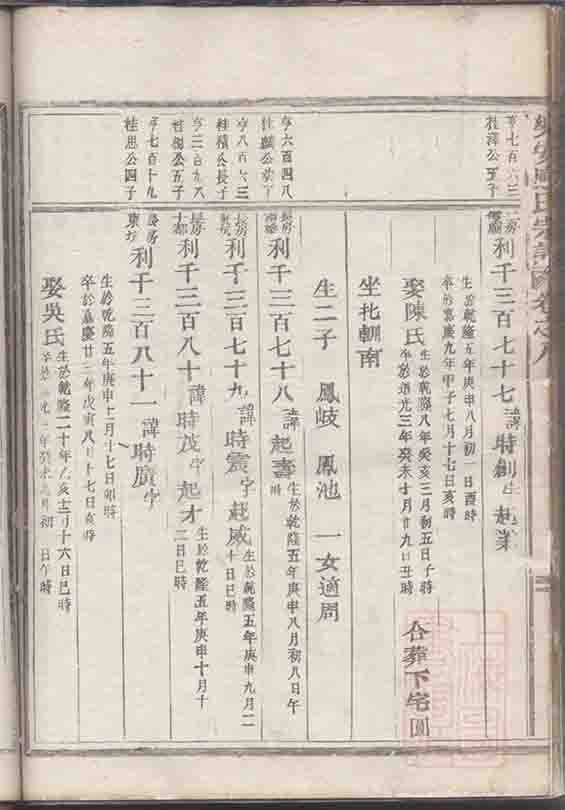 亨七百六三
桂澤公五子
利千三百七十七 諱時創 字起業
生於乾隆五年庚申八月初一日酉時
卒於嘉慶九年甲子七月十七日亥時
娶陳氏 生於乾隆八年癸亥三月初五日子時
卒於道光三年癸未十月廿九日丑時
合葬下宅圓
坐北朝南
生二子 鳳岐 鳳池 一女適周
亨六百四八
長房
利千三百七十八 諱起壽 生於乾隆五年庚申八月初八日午
時
亨八百六三
桂積公長子
長房
利千三百七十九 諱時震 字起威 生於乾隆五年庚申九月二
十日巳時
亨三百九八
公五子
長房
利千三百八十 諱時茂 字起才 生於乾隆五年庚申十月十
二日巳時
亨七百十九
桂思公四子
長房
利千三百八十一 諱時廣 字
生於乾隆五年庚申十二月十七日卯時
卒於嘉慶廿三年戊寅八月十七日亥時
娶吳氏 生於乾隆二十年乙亥十二月十六日巳時
日午時